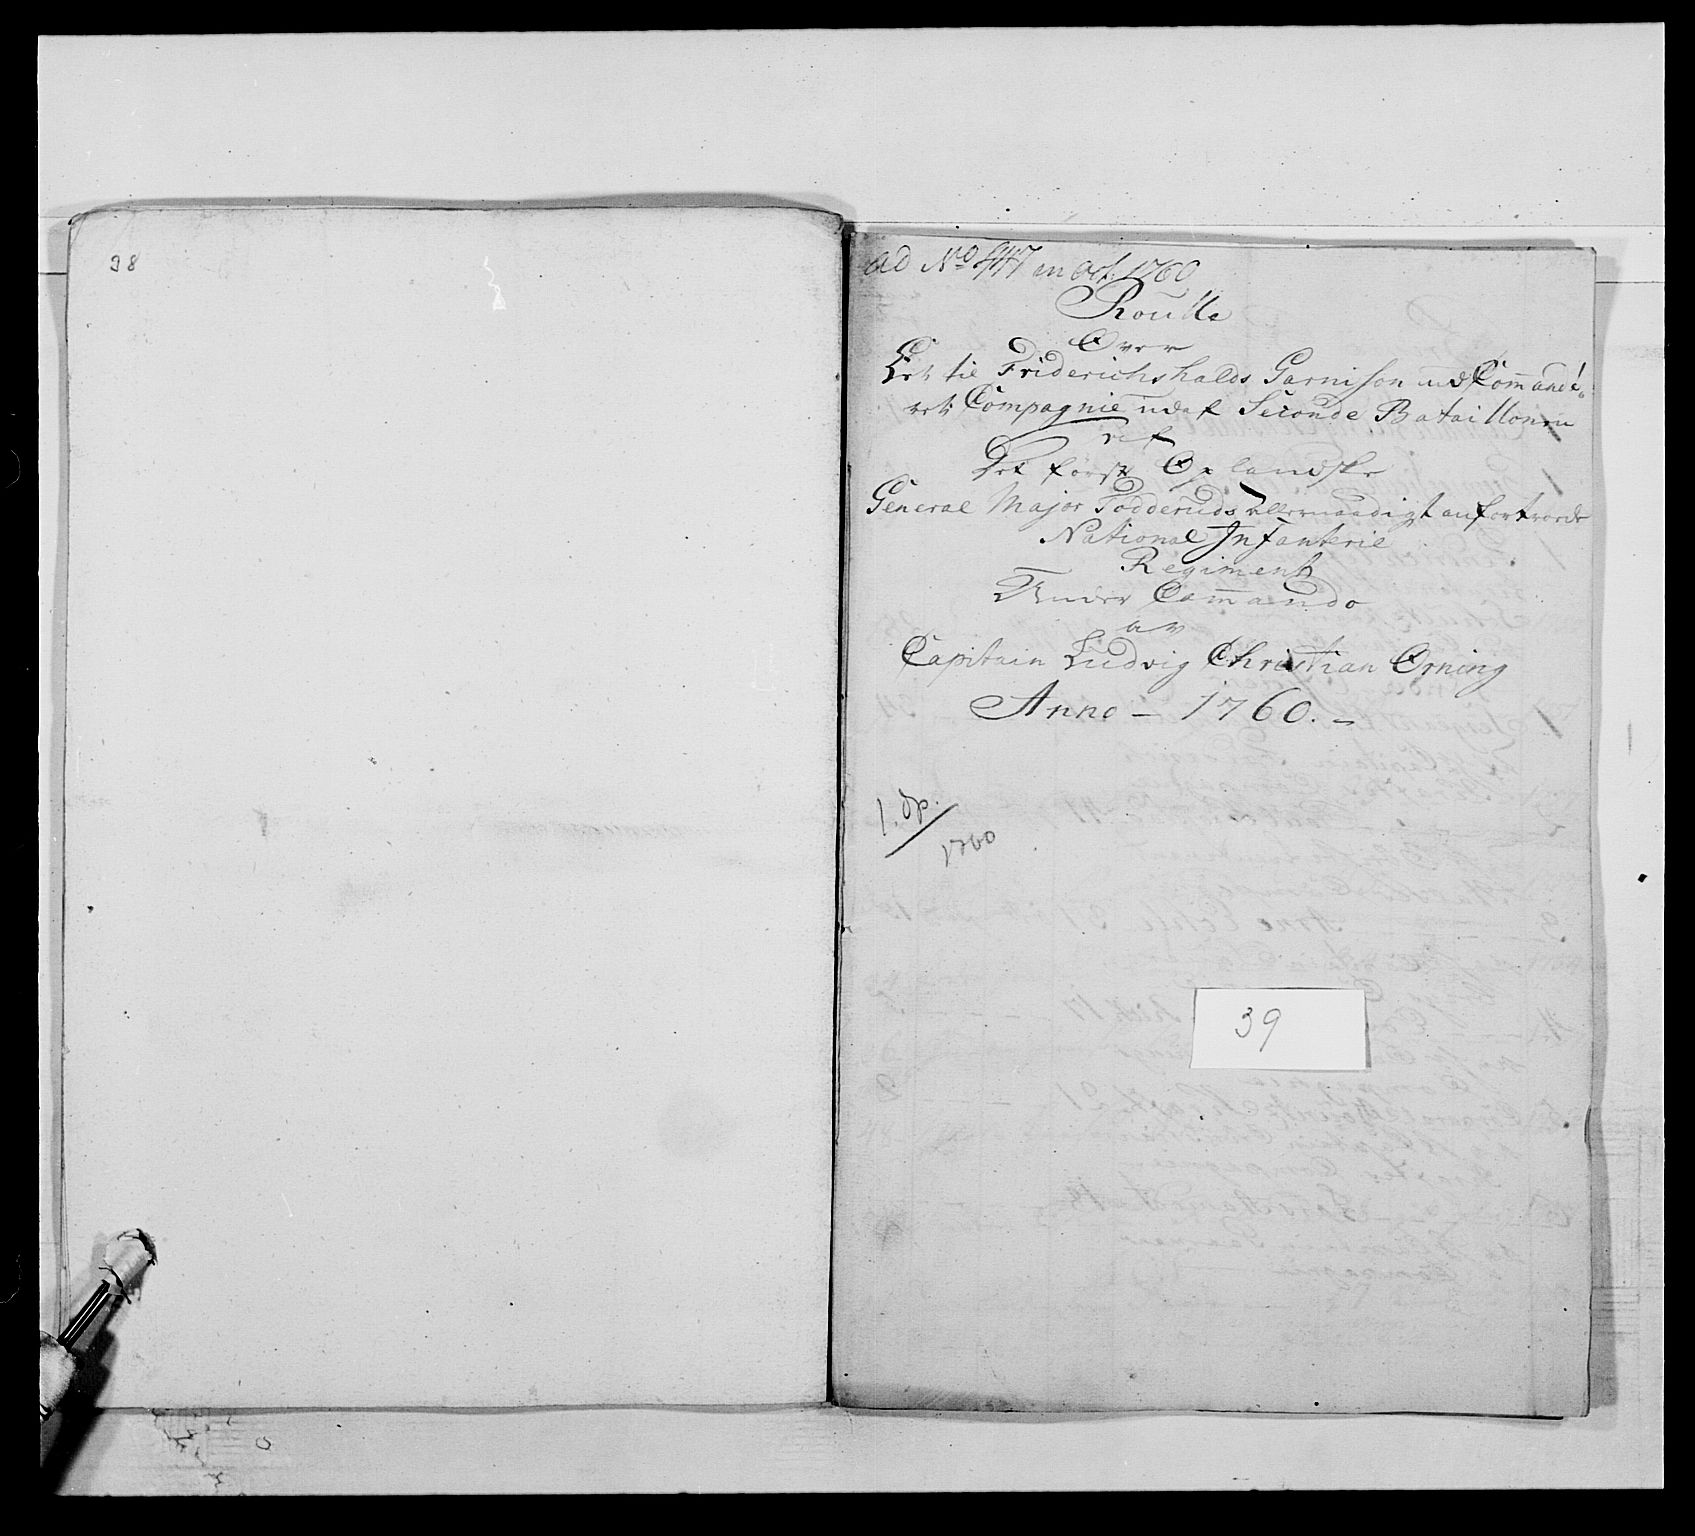 38
ad No 447 in Oct. 1760
Roulle
Over
Det til Friderichshalds Garnison udCommande-
ret Compagnie udaf Seconde Bataillonen
af
Det første Oplandske
General Major Todderuds allernaadigst anfortroede
National Infanterie
Regiment
Under Commando
av
Capitain Ludvig Christian Orning
Anno - 1760. -
1. op.
1760
39